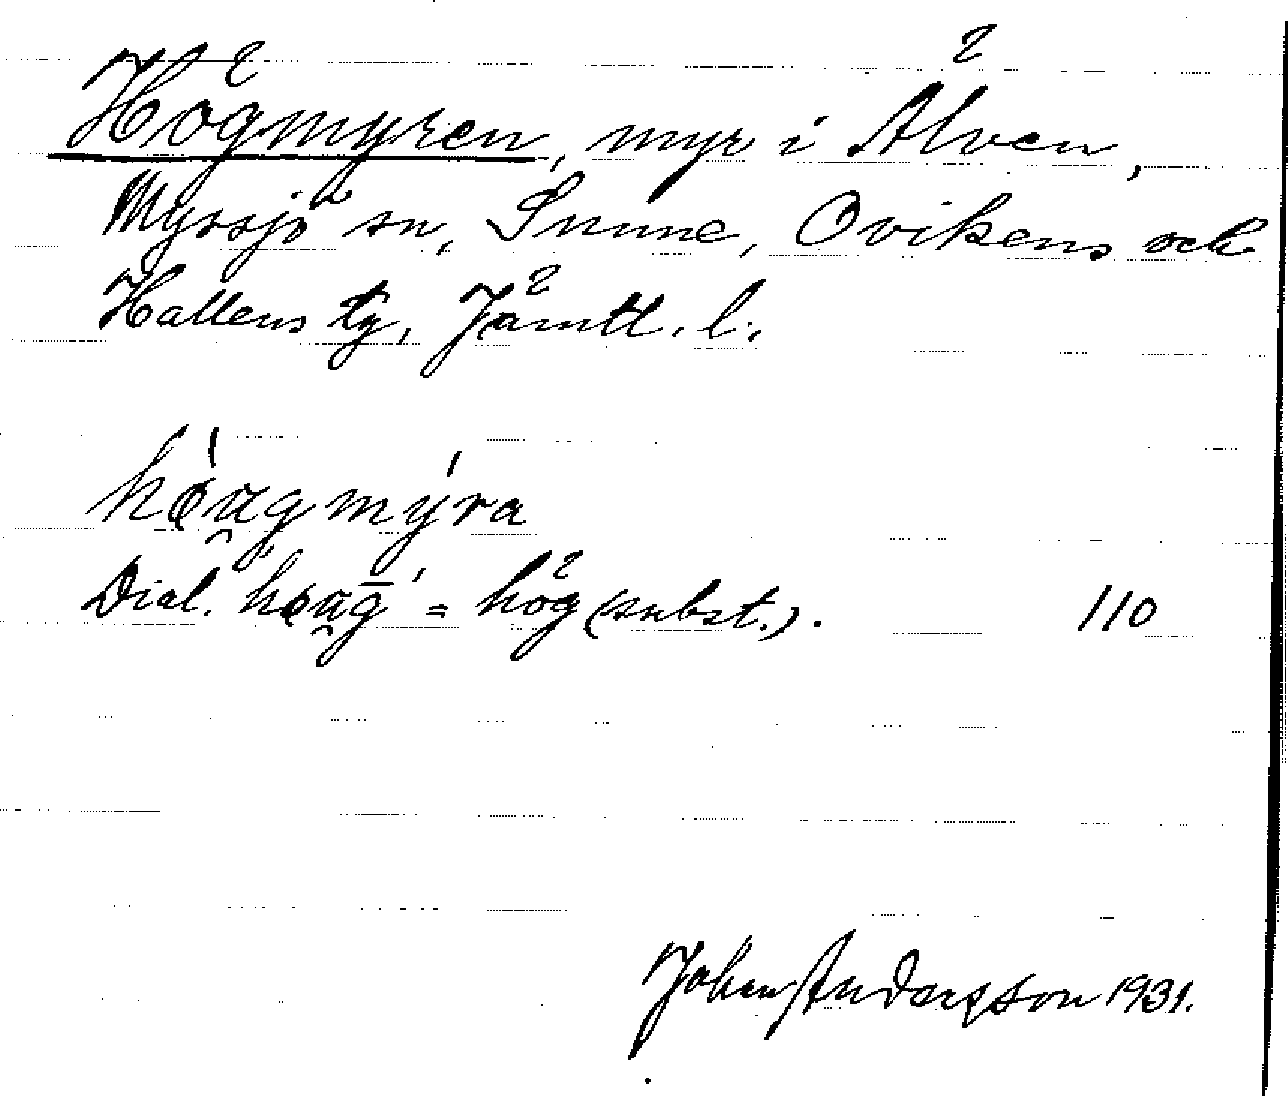 Högmyren, myr i Älven,
Myssjö sn, Sunne, Ovikens och
Hallens tg, Jämtl. l.
hǫu̯gmýra
Dial. hǫu̯g̅' = hög (subst.).
110
Johan Andersson 1931.